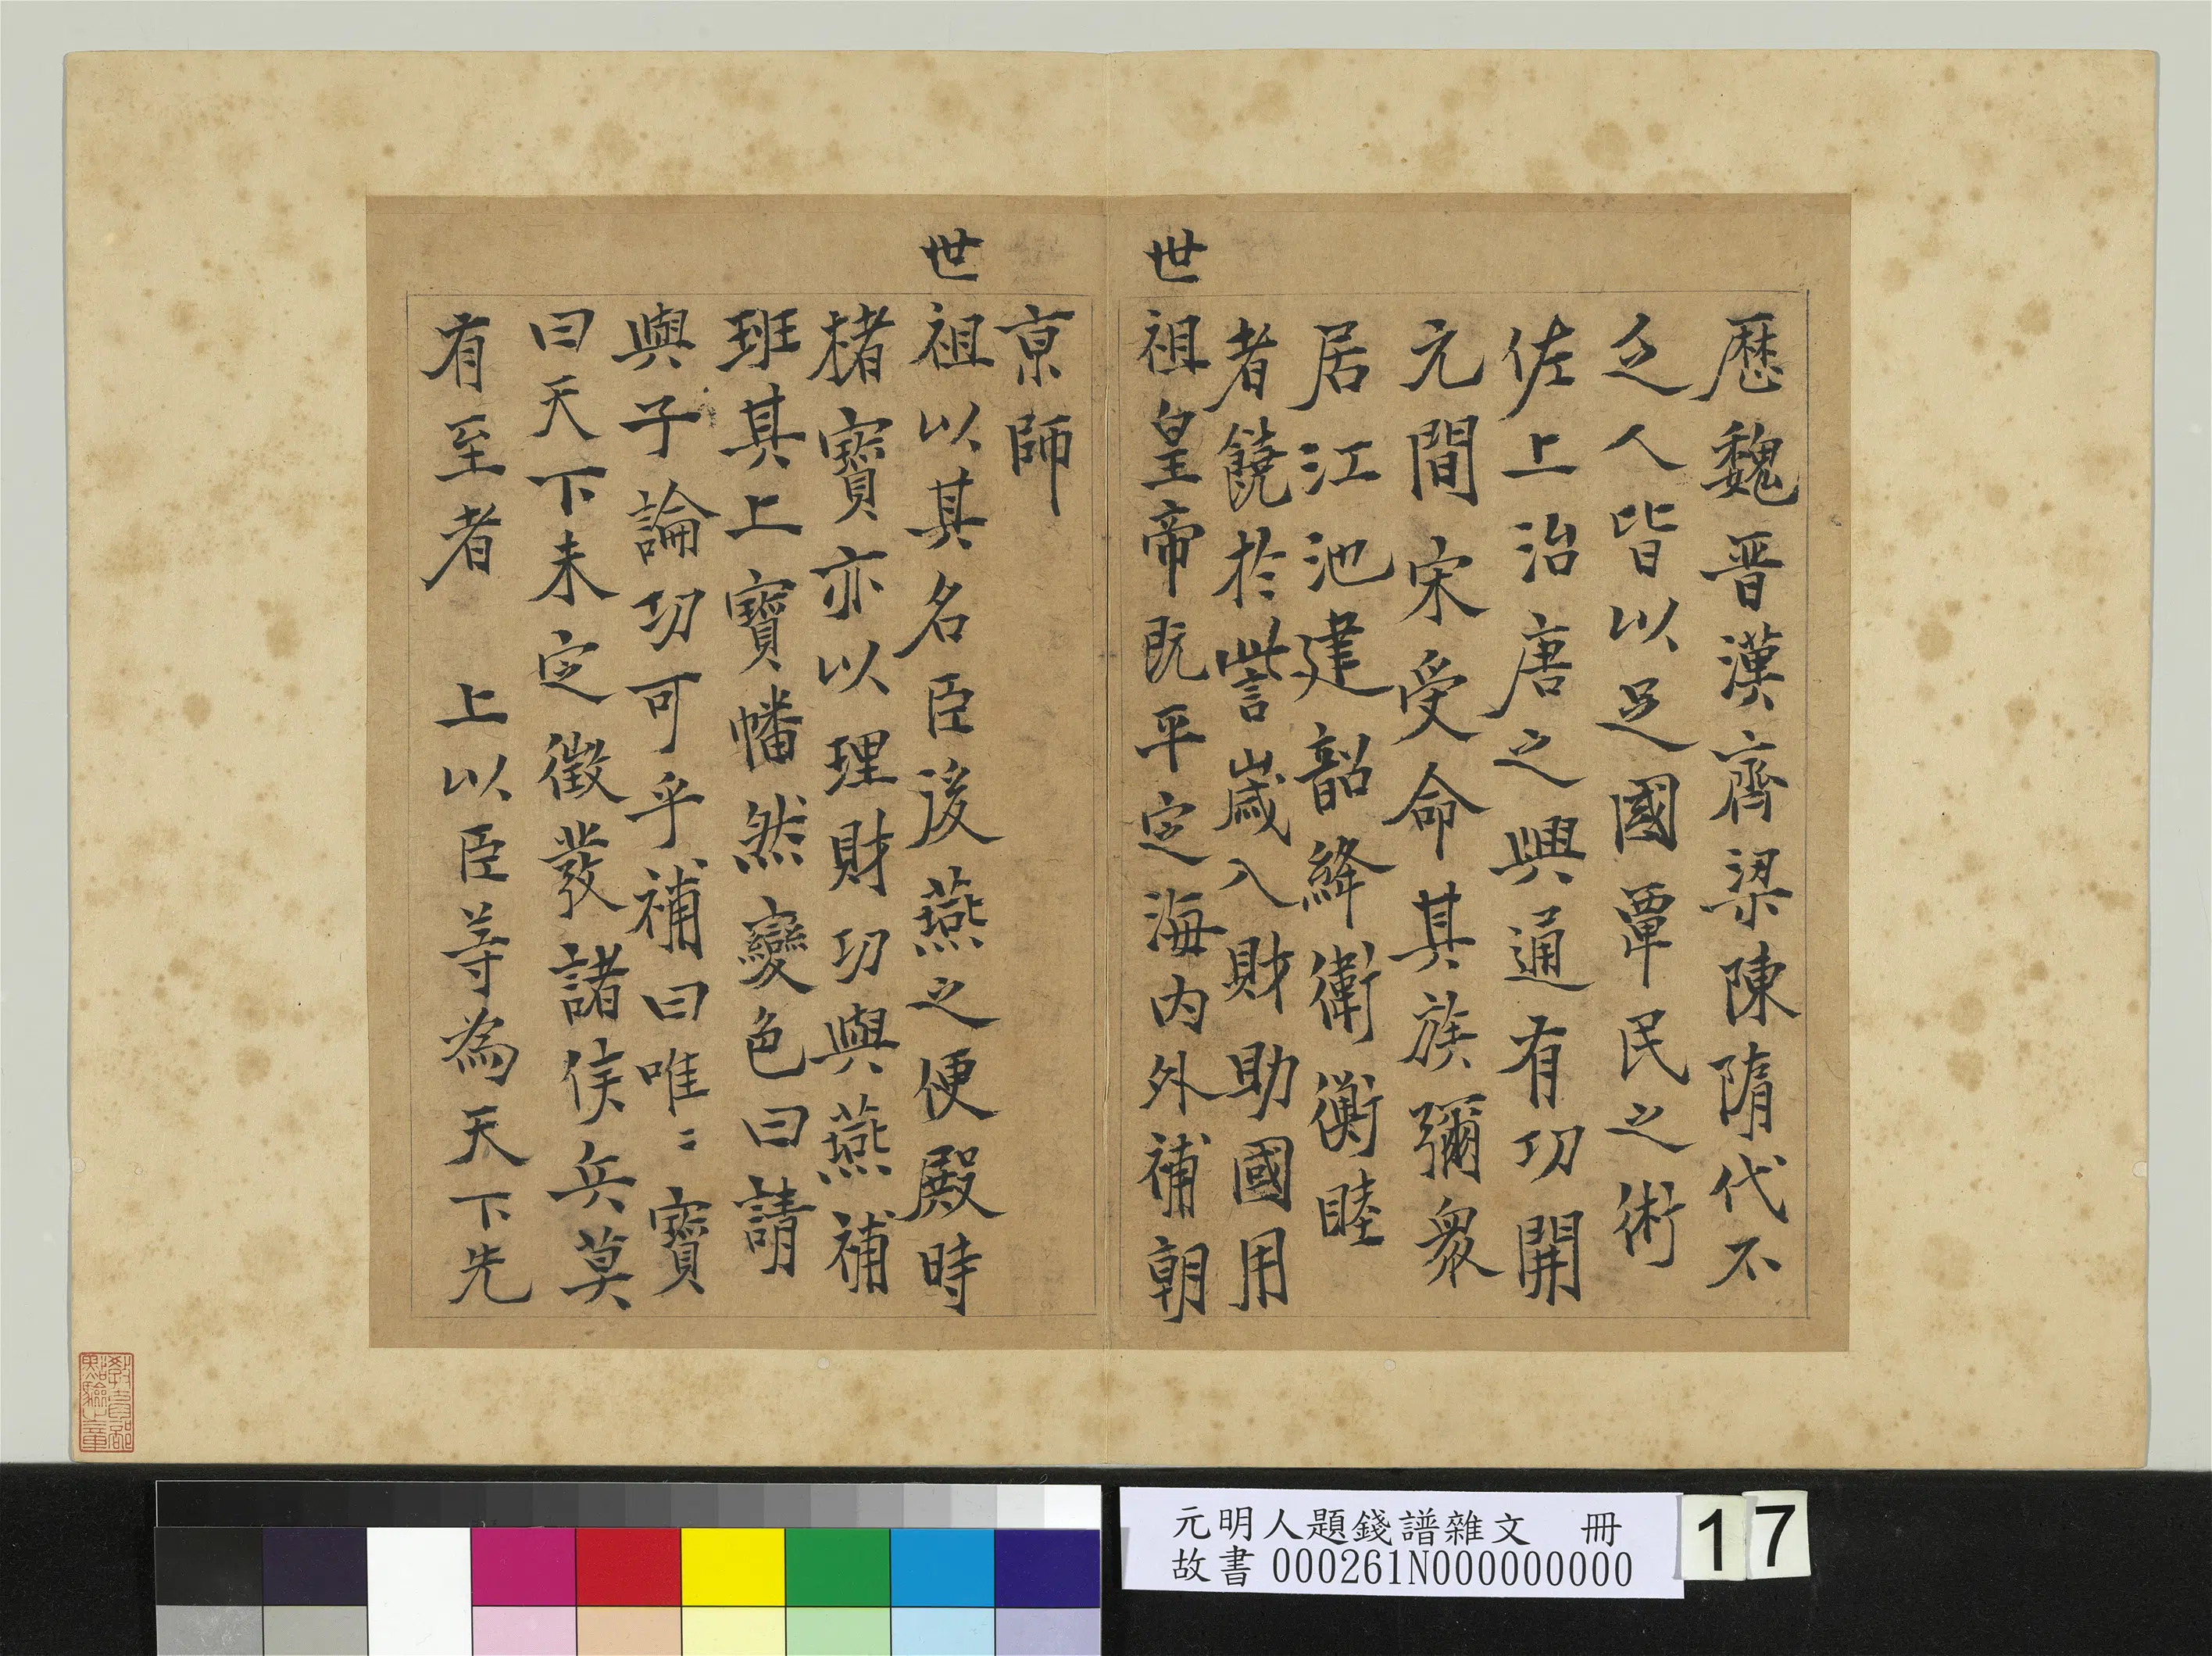 歷魏晋漢齊梁陳隋代不
乏人皆以足國覃民之術
佐上治唐之興通有功開
元間宋受命其族彌衆
居江池建韶絳衛衡睦
者饒於訾歲入財助國用
世祖皇帝既平定海内外補朝
京師
世祖以其名臣後燕之便殿時
楮寶亦以理財功與燕補
班其上寶幡然變色曰請
與子論功可乎補曰唯〻寶
曰天下未定徵發諸侯兵莫
有至者　上以臣等為天下先
教育部點驗之章
元明人題錢譜雜文　冊
故書 000261N000000000
17